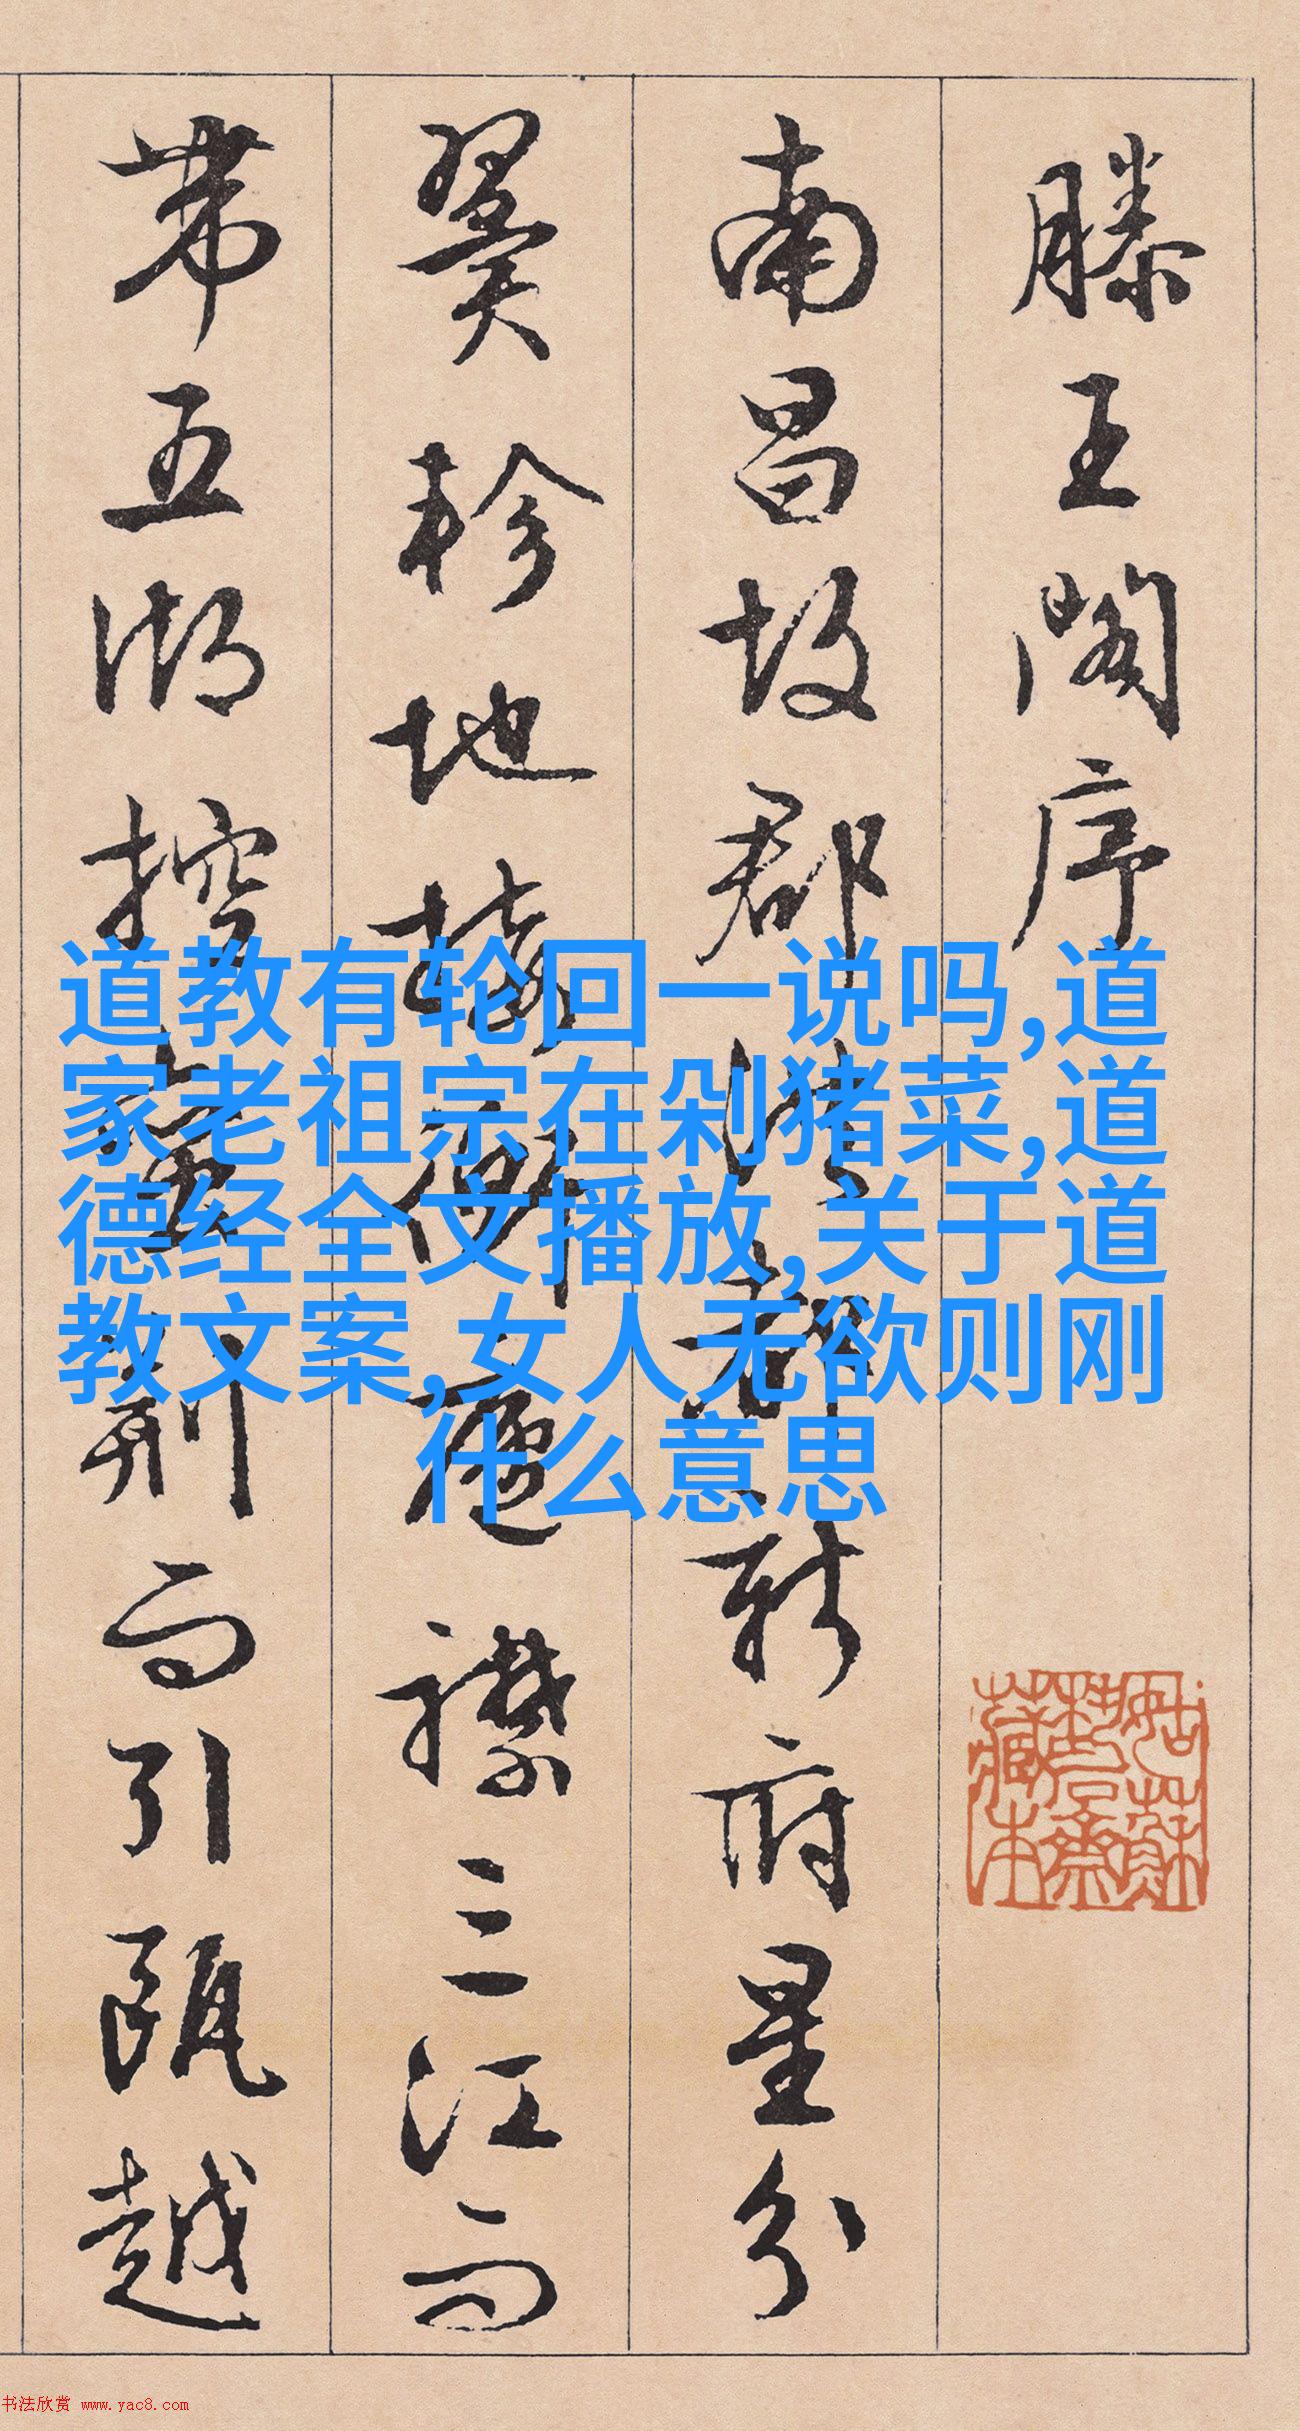 滕王阁序
南昌故郡洪都新府星分
翼轸地接衡庐襟三江而
带五湖控蛮荆而引瓯越
道教有轮回一说吗,道
家老祖宗在剁猪菜,道
德经全文播放,关于道
教文案,女人无欲则刚
什么意思
书法欣赏 www.yac8.com